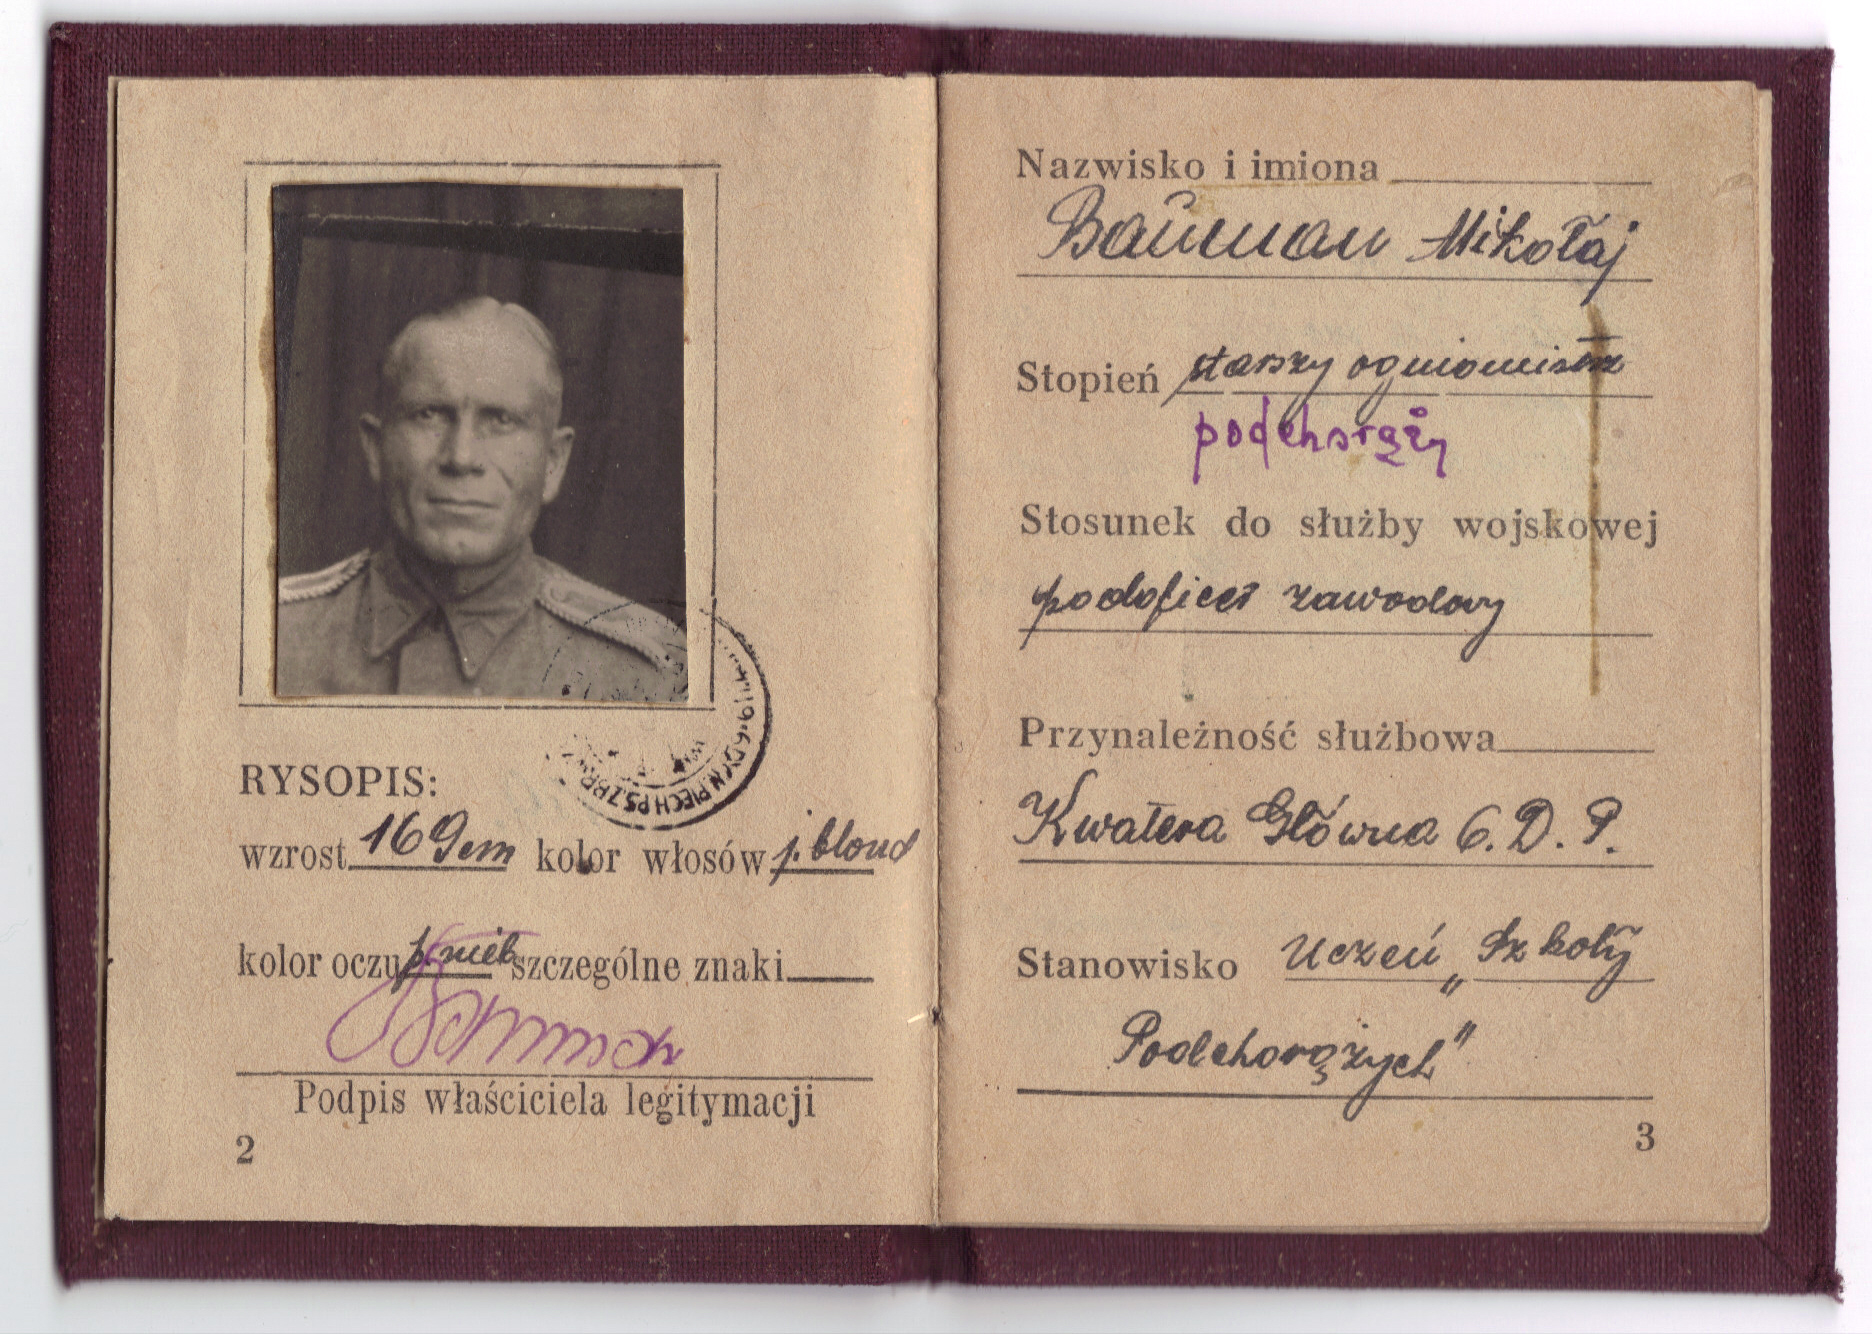 RYSOPIS:
wzrost 169cm kolor włosów j. blond
kolor oczu p. nieb szczególne znaki
Podpis właściciela legitymacji
2
Nazwisko i imiona
Bauman Mikołaj
Stopień starszy ogniomistrz
podchorąży
Stosunek do służby wojskowej
podoficer zawodowy
Przynależność służbowa
Kwatera Główna 6. D. P.
Stanowisko Uczeń „Szkoły
Podchorążych”
3